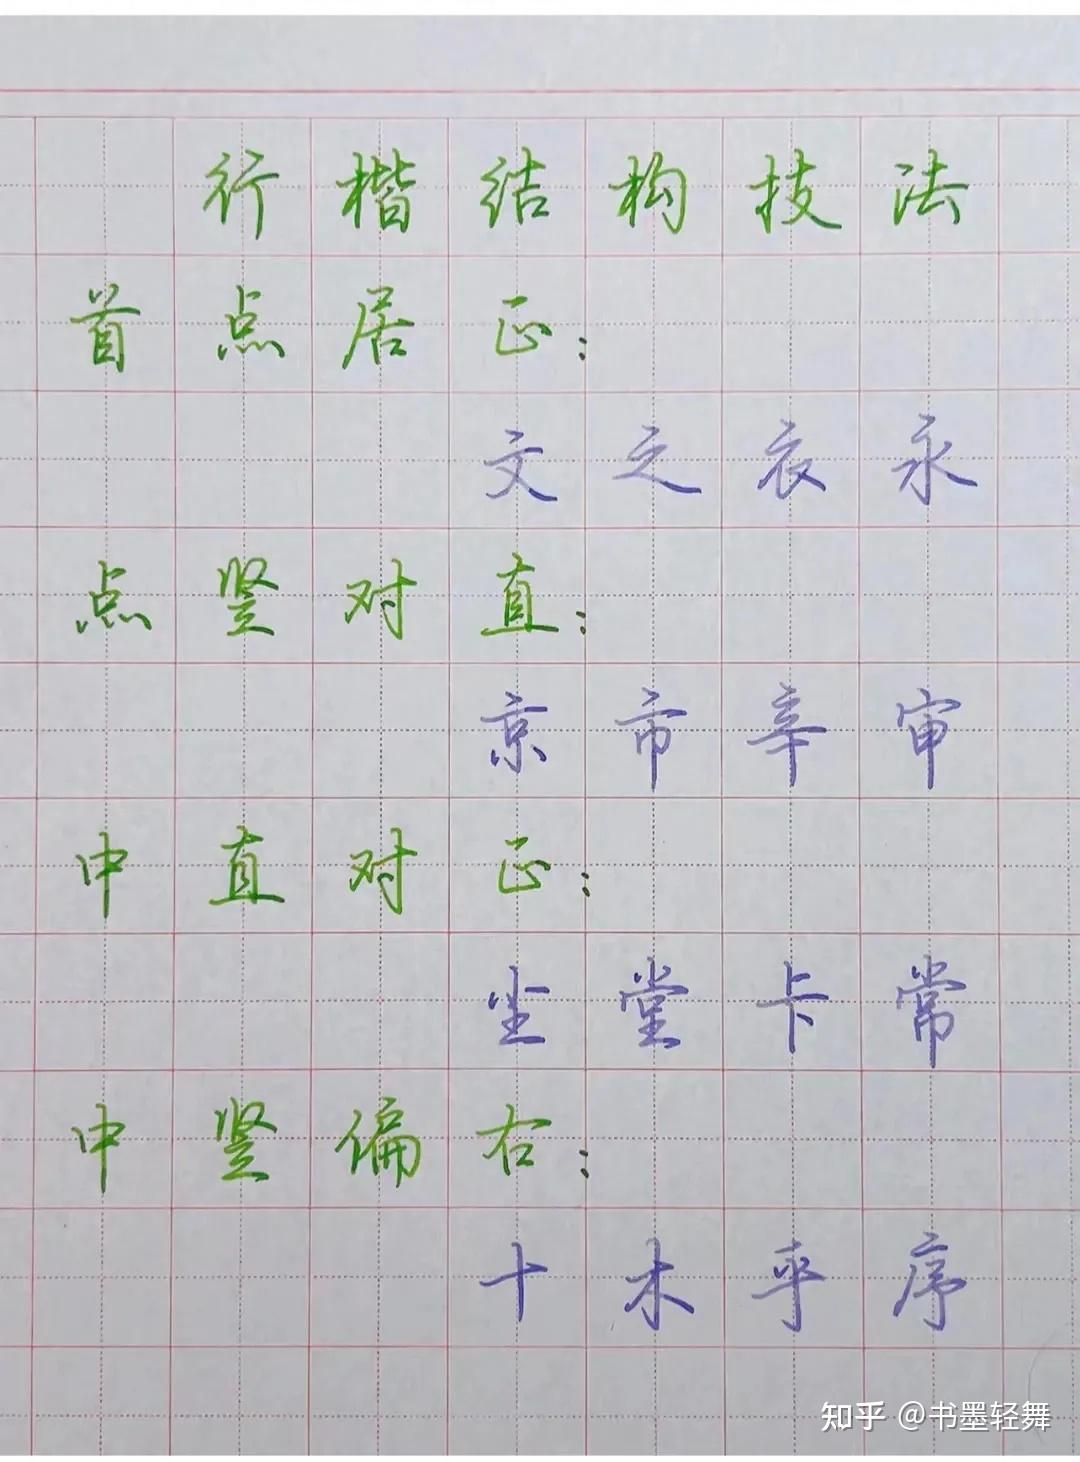 行楷结构技法
首点居正：
文之衣永
点竖对直：
京市辛审
中直对正：
尘堂卡常
中竖偏右：
十木平序
知乎 @书墨轻舞